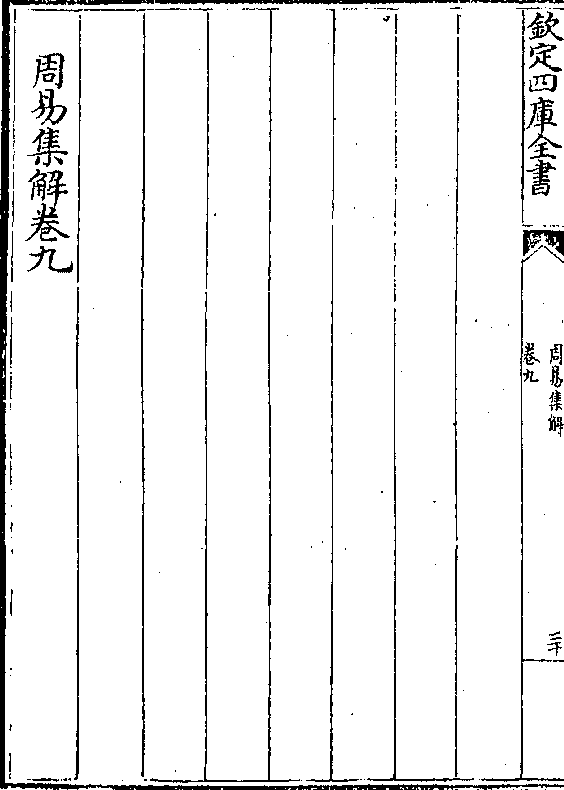 欽定四庫全書
周易集解
卷九
三十
周易集解卷九